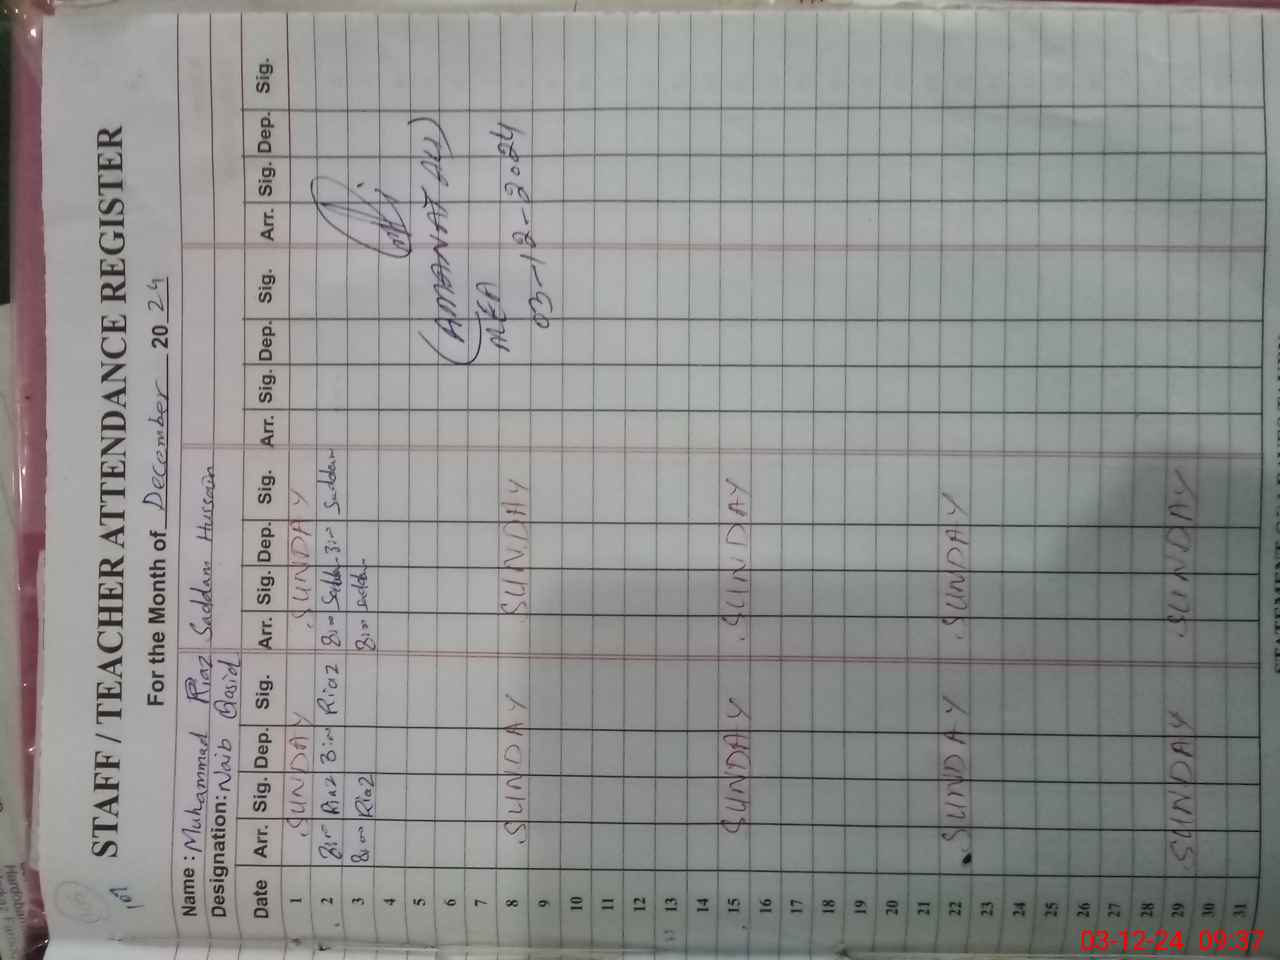 STAFF / TEACHER ATTENDANCE REGISTER
For the Month of December 20 24
Name : Muhammad Riaz Saddam Hussain
Designation: Naib Qasid
Date Arr. Sig. Dep. Sig. Arr. Sig. Dep. Sig. Arr. Sig. Dep. Sig. Arr. Sig. Dep. Sig.
1 SUNDAY SUNDAY
2 Riaz Riaz Saddam
3 Riaz
4
5 (AMANAT ALI)
6
7 MEA
8 SUNDAY SUNDAY 03-12-2024
9
10
11
12
13
14
15 SUNDAY SUNDAY
16
17
18
19
20
21
22 SUNDAY SUNDAY
23
24
25
26
27
28
29 SUNDAY SUNDAY
30
31
03-12-24 09:37